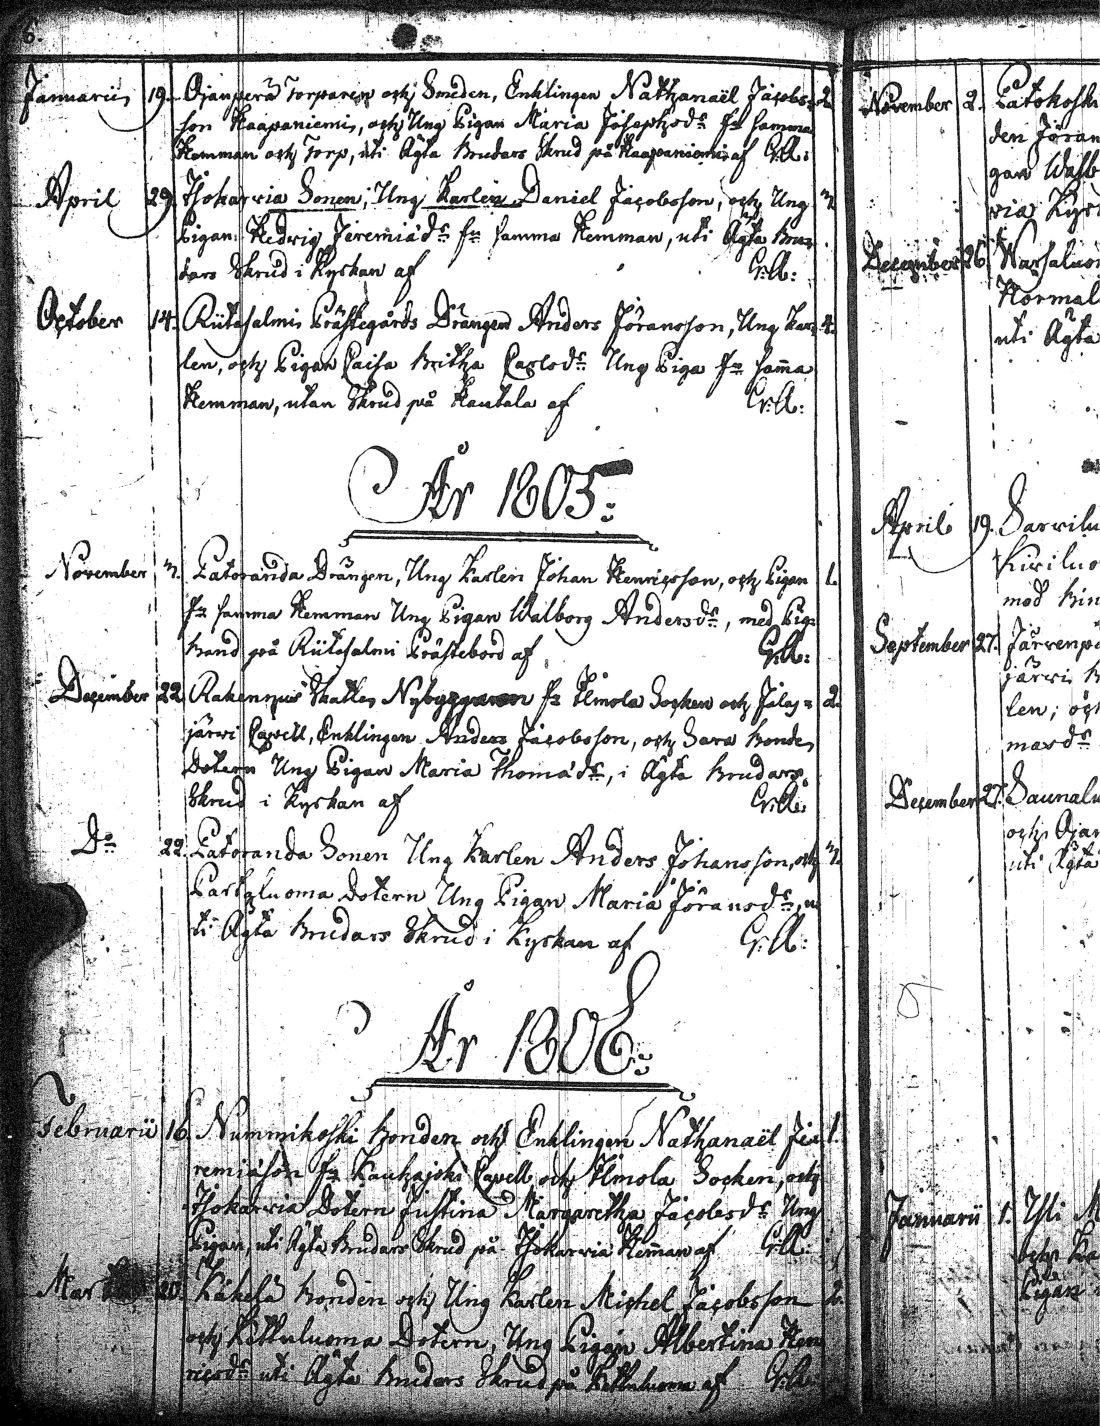 6.
Januarii 19. Ojanperä Torparen och Smeden, Enklingen Nathanaël Jacobs= 2.
son Haapaniemi, och Ung Pigan Maria Josephsdr fr samma
Hemman och Torp, uti Ägta Brudars Skrud på Haapaniemi af Gr:A:
April 29. Isokarvia Sonen, Ung Karlen Daniel Jacobsson, och Ung 3.
Pigan Hedvig Jeremiædr fr samma Hemman, uti Ägta Bru=
dars Skrud i Kyrkan af Gr:A:
October 14. Riitasalmi Prästegårds Drängen Anders Jöransson, Ung Kar= 4.
len, och Pigan Caisa Britha Carlsdr Ung Piga fr samma
Hemman, utan Skrud på Hautala af Gr:A:
År 1805.
November 3. Latoranda Drängen, Ung Karlen Johan Henricsson, och Pigan 1.
fr samma Hemman Ung Pigan Walborg Andersdr, med Pig=
band på Riitasalmi Prästebord af Gr:A:
December 22. Rakennus Skattes Nybyggaren fr Ilmola Socken och Jalas= 2.
järvi Capell, Enklingen Anders Jacobsson, och Sara Bonde
Dotern Ung Pigan Maria Thomædr, i Ägta Brudars
Skrud i Kyrkan af Gr:A:
Do 22. Latoranda Sonen Ung Karlen Anders Johansson, och 3.
Pastoluoma Dotern Ung Pigan Maria Jöransdr, u
ti Ägta Brudars Skrud i Kyrkan af Gr:A:
År 1806.
Februarii 16. Nummikoski Bonden och Enklingen Nathanaël Je= 1.
remiæson fr Kauhajoki Capell och Ilmola Socken, och
Isokarvia Dotern Justina Margaretha Jacobsdr Ung
Pigan, uti Ägta Brudars Skrud på Isokarvia Hemman af Gr:A:
Mar 20. Käkelä Bonden och Ung Karlen Michel Jacobsson 2.
och Kettuluoma Dotern, Ung Pigan Albertina Hen
ricsdr uti Ägta Brudars Skrud på Kettuluoma af Gr:A:
November 2. Latokoski
den Jöran
gan Walb
via Kyr
December 26. Warsaluo
Kormal
uti Ägta
April 19. Sarvilu
Kiviluo
med Bin
September 27. Järvenpä
järvi K
len; och
marsdr
December 27. Saunalu
och Ojan
uti Ägta
Januarii 1. Yli M
och Ka
Pigan